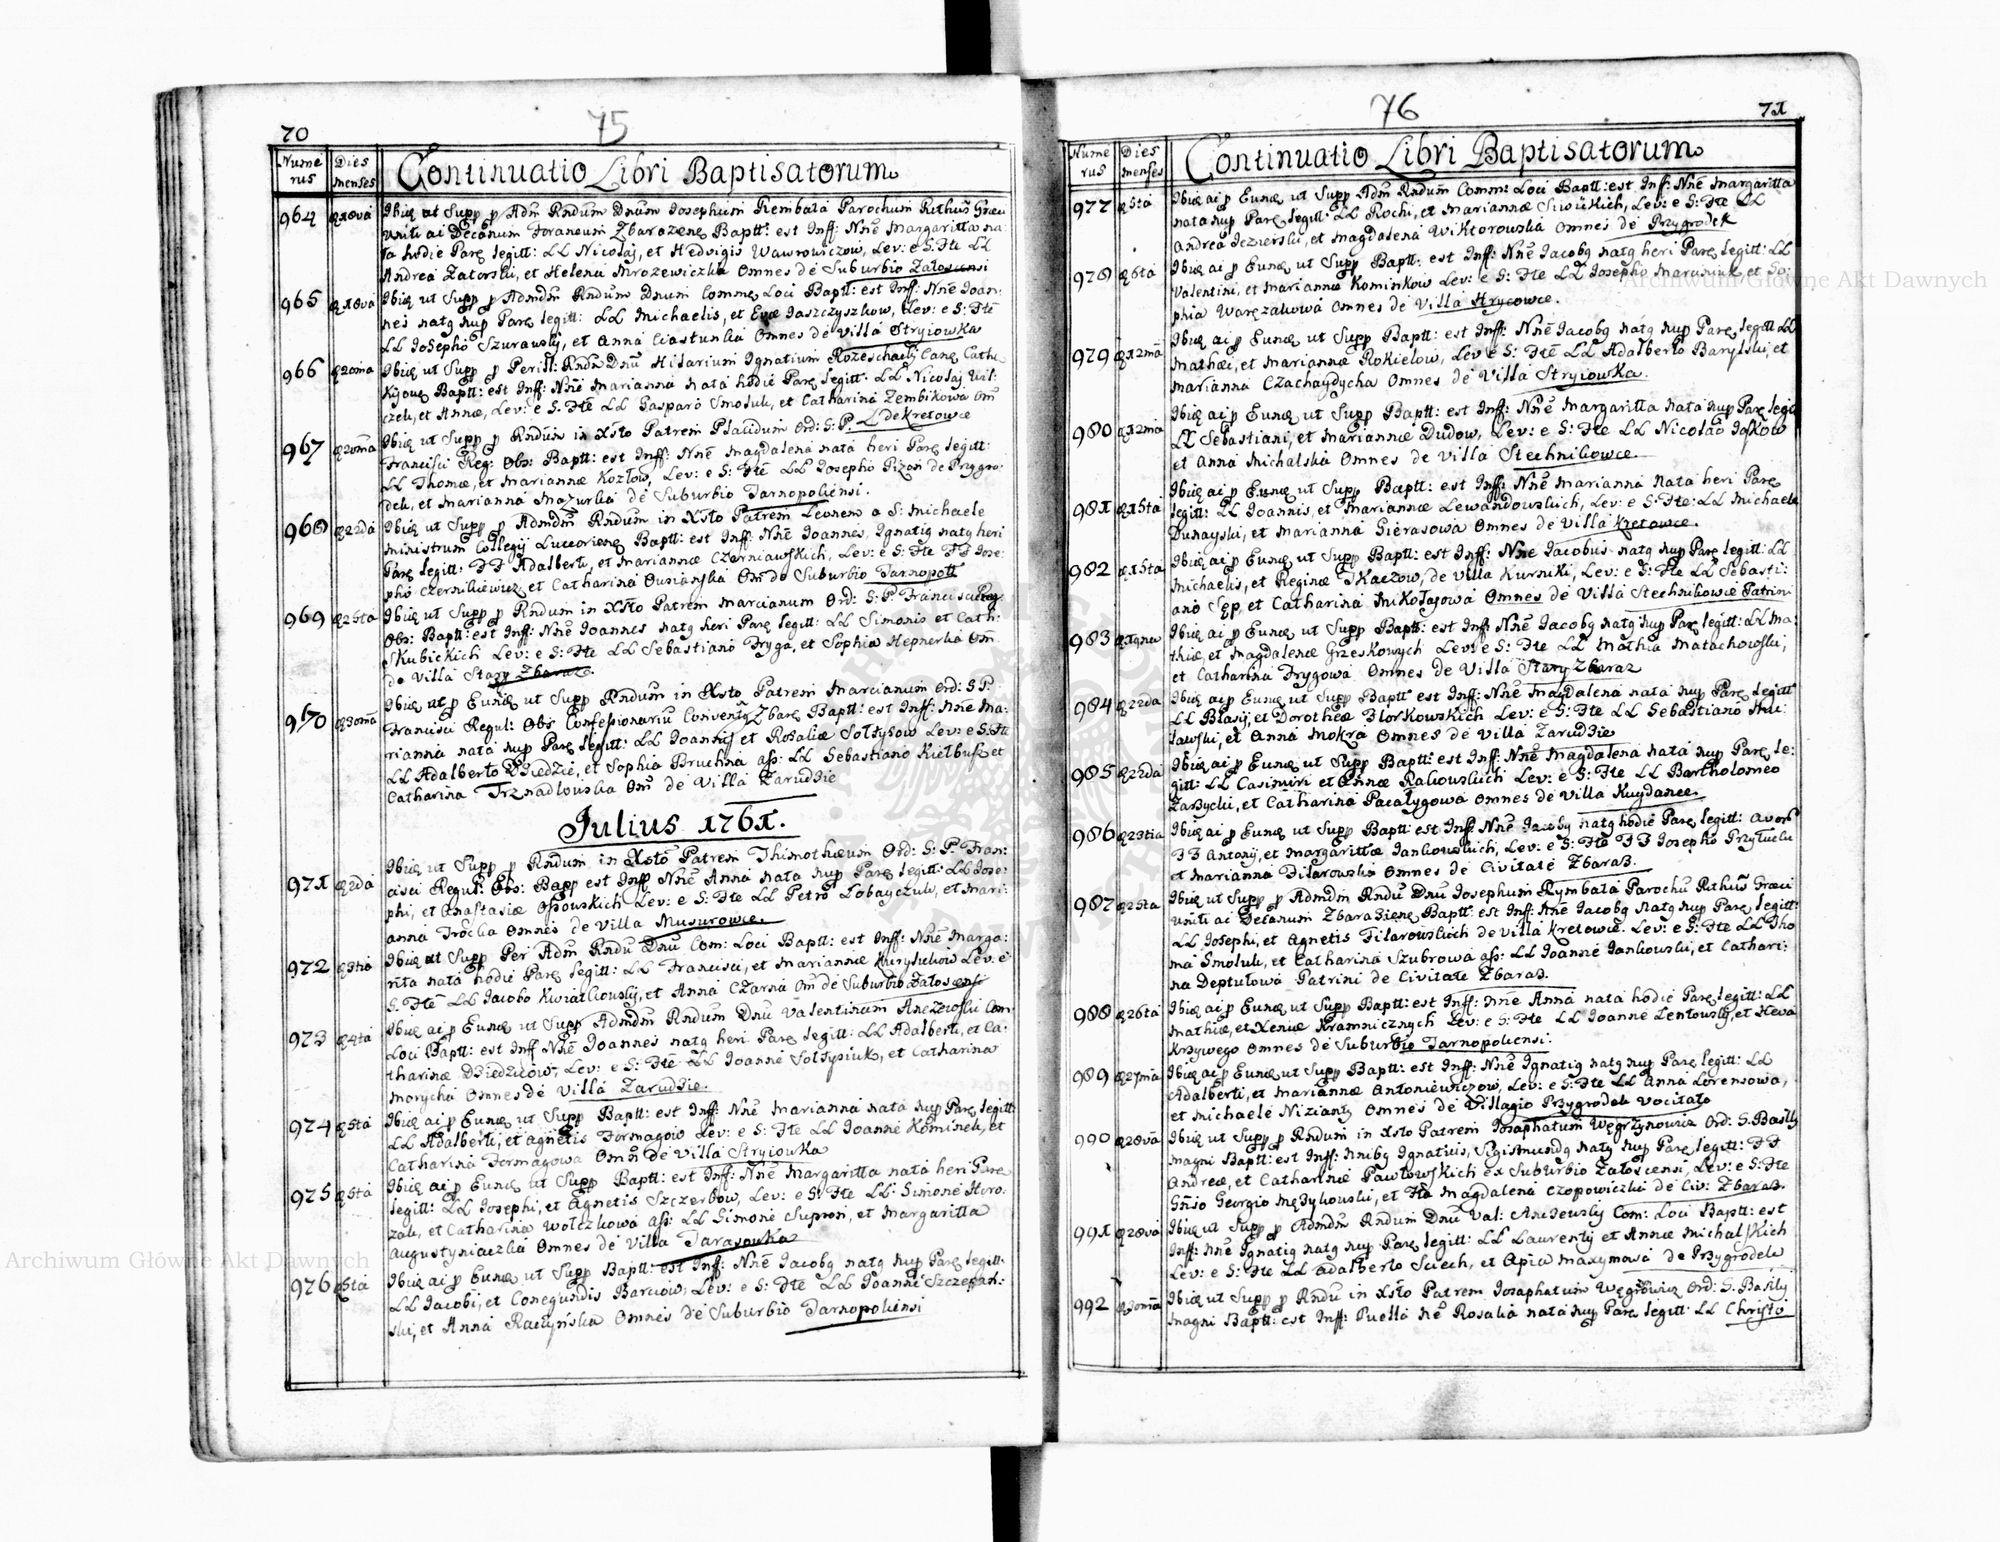 70
75
Nume
rus
Dies
menses
Continuatio Libri Baptisatorum
964 18va Ibiq ut Supp p Adm Rndum Dnum Josephum Rembala Parochum Ruthu Græci
Uniti ai Decanum foraneum Zbarazenę Baptt: est Inff: Nne Margaritta na:
ta hodie Parę legitt: LL Nicolaj, et Hedvigis Wawrowiczow, Lev: e S: Fte LL
Andrea Zatorski, et Helena Mrozewiczka Omnes de Suburbio Zaloscensi
965 18va Ibiq ut Supp p Admdm Rndum Dnum Commę Loci Baptt: est Inff: Nne Joan:
nes natg nup Parę legitt: LL Michaelis, et Evæ Jaszczyszkow, Lev: e S: Fte
LL Josepho Szurawsky, et Anna Ciastunka Omnes de Villa Stryiowka
966 20ma Ibiq ut Supp p Perill: Rndm Dnu Hilarium Ignatium Rozeschacky Canę Cath:
Kijoue Baptt: est Inff: Nne Marianna nata hodie Parę legitt: LL Nicolaj Wil:
czek, et Annæ, Lev: e S: Fte LL Gasparo Smoluk, et Catharina Zembikowa Om
L de Kretowce
967 20ma Ibiq ut Supp p Rndum in Xsto Patrem Placidum Ord: S: P.
Francisci Reg: Obs: Baptt: est Inff: Nne Magdalena nata heri Parę legitt:
LL Thomæ, et Mariannæ Kozłow, Lev: e S: Fte LL Josepho Pizon de Przygro:
dek, et Marianna Mazurka de Suburbio Tarnopoliensi.
968 22da Ibiq ut Supp p Admdm Rndum in Xsto Patrem Leonem a S: Michaele
Ministrum Collegij Luceorienę Baptt: est Inff: Nne Joannes, Ignatig natg heri
Parę legitt: FF Adalberti, et Mariannæ Czerniawskich, Lev: e S: Fte FF Jose:
pho Czernikiewicz, et Catharina Om de Suburbio Tarnopoli
969 25ta Ibiq ut Supp p Rndum in Xsto Patrem Marcianum Ord: S: P. Francisci Reg
Obs: Baptt: est Inff: Nne Joannes natg heri Parę legitt: LL Simonis et Cath:
Skubickich Lev: e S: Fte LL Sebastiano Fryga, et Sophia Hepnerka Om
de Villa Stary Zbaraz.
970 30ma Ibiq ut p Eunę ut Supp Rndum in Xsto Patrem Marcianum Ord: S P.
Francisci Regul: Obs Confessionariu Conventg Zbarę Baptt: est Inff: Nne Ma:
rianna nata nup Parę legitt: LL Joannis et Rosaliæ Sołtysow Lev: e S: Fte
LL Adalberto Dziedzic, et Sophia Bruchna ass: LL Sebastiano Kiełbus et
Catharina Trznadlowska Om de Villa Zarudzie
Julius 1761.
971 2da Ibiq ut Supp p Rndum in Xsto Patrem Thimotheum Ord: S: P. Fran:
cisci Regul: Obs: Bapp est Inff Nne Anna nata nup Parę legitt: LL Jose:
phi, et Anastasiæ Ossowskich Lev: e S: Fte LL Petro Lobayczuk, et Mari:
anna Troćka Omnes de Villa Musurowce.
972 3tia Ibiq ut Supp Per Adm Rndu Dnu Com: Loci Baptt: est Inff: Nne Marga:
ritta nata hodie Parę legitt: LL Francisci, et Mariannæ Lev: e
S: Fte LL Jacobo Kwiatkowsky, et Anna Czarna Om de Suburbio Zaloscensi
973 4ta Ibiq ai p Eunę ut Supp Admdm Rndum Dnu Valentinum Anczewski Com:
Loci Baptt: est Inff Nne Joannes natg heri Parę legitt: LL Adalberti, et Ca:
tharinæ Dziedzicow, Lev: e S: Fte LL Joanne Sołtysiuk, et Catharina
Marycha Omnes de Villa Zarudzie.
974 5ta Ibiq ai p Eunę ut Supp Baptt: est Inff: Nne Marianna nata nup Parę legitt:
LL Adalberti, et Agnetis Formagow Lev: e S: Fte LL Joanne Kominek, et
Catharina Formagowa Omn de Villa Stryiowka
975 5ta Ibiq ai p Eunę ut Supp Baptt: est Inff: Nne Margaritta nata heri Parę
legitt: LL Josephi, et Agnetis Szczerbow, Lev: e S: Fte LL: Simone Huro:
zak, et Catharina Wołczkowa ass: LL Simone Supron, et Margaritta
Augustyniaczka Omnes de Villa Tarasowka
976 5ta Ibiq ai p Eunę ut Supp Baptt: est Inff: Nne Jacobg natg nup Parę legitt:
LL Jacobi, et Conegundis Barciow, Lev: e S: Fte LL Joanne Szczepan:
ski, et Anna Raczyńska Omnes de Suburbio Tarnopoliensi
76
71
Nume
rus
Dies
menses
Continuatio Libri Baptisatorum
977 5ta Ibiq ai p Eunę ut Supp Adm Rndum Comm: Loci Baptt: est Inff: Nne Margaritta
nata nup Parę legitt: LL Rochi, et Mariannæ Lev: e S: Fte LL
Andrea Jezierski, et Magdalena Wiktorowska Omnes de Przygrodek
978 6ta Ibiq ai p Eunę ut Supp Baptt: est Inff: Nne Jacobg natg heri Parę legitt: LL
Valentini, et Mariannæ Kominkow Lev: e S: Fte LL Josepho Marciniuk et So:
phia Waręzakowa Omnes de Villa Hrycowce.
979 12ma Ibiq ai p Eunę ut Supp Baptt: est Inff: Nne Jacobg natg nup Parę legitt LL
Mathæi, et Mariannæ Rokielow, Lev e S: Fte LL Adalberto Barylski, et
Marianna Czachaydycha Omnes de Villa Stryiowka.
980 12ma Ibiq ai p Eunę ut Supp Baptt: est Inff: Nne Margaritta nata nup Parę legit
LL Sebastiani, et Mariannæ Dudow, Lev: e S: Fte LL Nicolao Jaskow
et Anna Michalska Omnes de Villa Stechnikowce.
981 15ta Ibiq ai p Eunę ut Supp Baptt: est Inff: Nne Marianna nata heri Parę
legitt: LL Joannis, et Mariannæ Lewandowskich, Lev: e S: Fte: LL Michaele
Dunayski, et Marianna Gierasowa Omnes de Villa Kretowce.
982 15ta Ibiq ai p Eunę ut Supp Baptt: est Inff: Nne Jacobus natg nup Parę legitt: LL
Michaelis, et Reginæ Tkaczow, de Villa Kurniki, Lev: e S: Fte LL Sebasti:
ano Sęp, et Catharina Mikołajowa Omnes de Villa Stechnikowce Patrini
983 19na Ibiq ai p Eunę ut Supp Baptt: est Inff Nne Jacobg natg nup Parę legitt: LL Ma:
thiæ, et Magdalenæ Grzeskowych Lev: e S: Fte LL Mathia Matachowski,
et Catharina Frygowa Omnes de Villa Stary Zbaraz
984 22da Ibiq ai p Eunę ut Supp Baptt est Inff: Nne Magdalena nata nup Parę legitt
LL Blasij, et Dorotheæ Florkowskich Lev: e S: Fte LL Sebastiano Sku:
lawski, et Anna Mokra Omnes de Villa Zarudzie
985 22da Ibiq ai p Eunę ut Supp Baptt: est Inff: Nne Magdalena nata nup Parę le:
gitt: LL Casimiri et Annæ Rakowskich Lev: e S: Fte LL Bartholomeo
Zarzycki, et Catharina Pacałygowa Omnes de Villa Kuydance.
986 23tia Ibiq ai p Eunę ut Supp Baptt: est Inff Nne Jacobg natg hodie Parę legitt:
FF Antonij, et Margarittæ Jankowskich, Lev: e S: Fte FF Josepho Przyłucki
et Marianna Filarowska Omnes de Civitate Zbaraz.
987 25ta Ibiq ut Supp p Admdm Rndu Dnu Josephum Rymbala Parochu Ruthu Græci
Uniti ai Decanum Zbarazienę Baptt: est Inf: Nne Jacobg natg nup Parę legitt:
LL Josephi, et Agnetis Filarowskich de Villa Kretowce. Lev: e S: Fte LL Tho
ma Smoluk, et Catharina Szubrowa ass: LL Joanne Jankowski, et Cathari:
na Deptułowa Patrini de Civitate Zbaraz.
988 26ta Ibiq ai p Eunę ut Supp Baptt: est Inff: Nne Anna nata hodie Parę legitt: LL
Mathiæ, et Xeniæ Kramnicznych Lev: e S: Fte LL Joanne Zentowsky, et Heva
Krzywego Omnes de Suburbio Tarnopoliensi.
989 27ma Ibiq ai p Eunę ut Supp Baptt: est Inff: Nne Ignatig natg nup Parę legitt: LL
Adalberti, et Mariannæ Antoniewiczow, Lev: e S: Fte LL Anna Lorensowa,
et Michaele Niziants Omnes de Villagio Przygrodek vocitato
990 28va Ibiq ut Supp p Rndum in Xsto Patrem Josaphatum Węgrzynowicz Ord: S. Basilij
Magni Baptt: est Inff: Nnibg Ignatius, Sigismundg natg nup Parę legitt: FF
Andreæ, et Catharinæ Pawłowskich ex Suburbio Zaloscensi, Lev: e S: Fte
Gnso Georgio Mędykowski, et Fta Magdalena Czopowiczka de Civ: Zbaraz.
991 28va Ibiq ut Supp p Admdm Rndum Dnu Val: Anczewsky Com: Loci Baptt: est
Inff: Nne Ignatig natg nup Parę legitt: LL Laurentij et Annæ Michalskich
Lev: e S: Fte LL Adalberto Sciech, et Apia Maxymowa de Przygrodek
992 30ma Ibiq ut Supp p Rndu in Xsto Patrem Josaphatum Ord: S. Basilij
Magni Baptt: est Inff: Puella Ne Rosalia nata nup Parę legitt: LL Christo
Archiwum Główne Akt Dawnych
Archiwum Główne Akt Dawnych